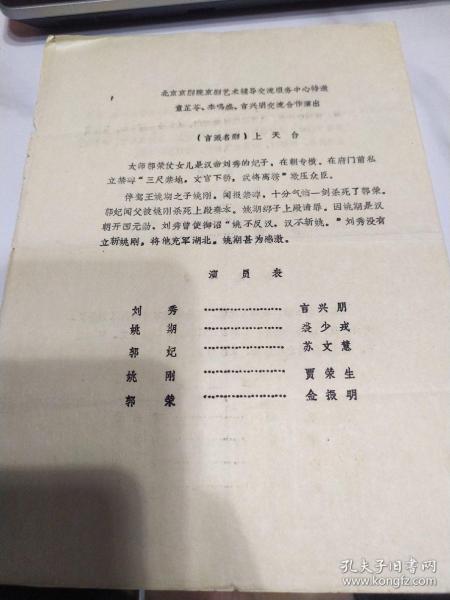 北京京剧院京剧艺术辅导交流服务中心特邀
童芷苓、李鸣盛、言兴朋交流合作演出
(言派名剧)上天台
太师郭荣仗女儿是汉帝刘秀的妃子,在朝专横。在府门前私
立禁碑“三尺禁地,文官下轿,武将离鞍”欺压众臣。
伴驾王姚期之子姚刚,闻报禁碑,十分气恼一剑杀死了郭荣。
郭妃闻父被姚刚杀死上殿奏本。姚期绑子上殿请罪。因姚期是汉
朝开国元勋。刘秀曾使御诏“姚不反汉,汉不斩姚。”刘秀没有
立斩姚刚,将他充军湖北。姚期甚为感激。
演员表
刘秀………………言兴朋
姚期………………裘少戎
郭妃………………苏文慧
姚刚………………贾荣生
郭荣………………金振明
孔夫子旧书网
www.kongfz.com